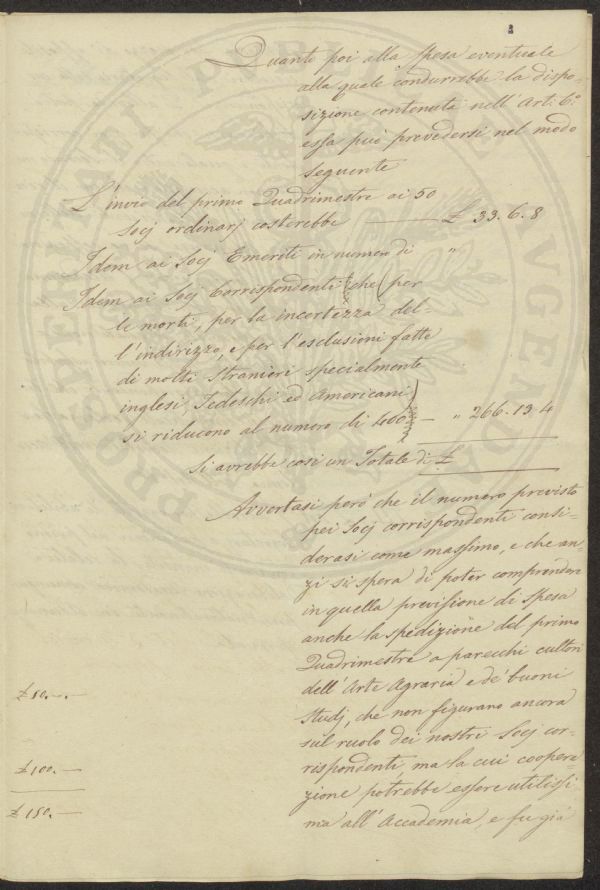 Quanto poi alla spesa eventuale
alla quale condurrebbe la dispo-
sizione contenuta nell'Art: 6.o
essa può prevedersi nel modo
seguente
L'invio del primo Quadrimestre ai 50
Socj ordinarj costerebbe — £ 33. 6. 8
Idem ai Socj Emeriti in numero di "
Idem ai Socj Corrispondenti (che per
le morti, per la incertezza del-
l'indirizzo, e per l'esclusioni fatte
di molti stranieri specialmente
inglesi, Tedeschi ed Americani)
si riducono al numero di 400 — " 266. 13. 4
Si avrebbe così un Totale di £
Avvertasi però che il numero previsto
pei Socj corrispondenti consi-
derasi come massimo, e che an-
zi si spera di poter comprendere
in quella previsione di spesa
anche la spedizione del primo
Quadrimestre a parecchi cultori
dell'Arte Agraria e de' buoni
Studj, che non figurano ancora
sul ruolo dei nostri Socj cor-
rispondenti ma la cui coopera
zione potrebbe essere utilissi
ma all'Accademia, e fu già
£ 100. —
PROSPERITATI PUBLICAE AUGENDAE